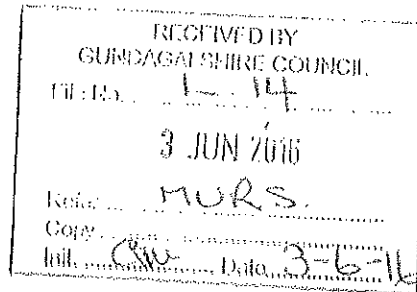 RECEIVED BY
GUNDAGAI SHIRE COUNCIL
File No. L.14
3 JUN 2016
Refer MURS.
Copy
Init. Date 3-6-16